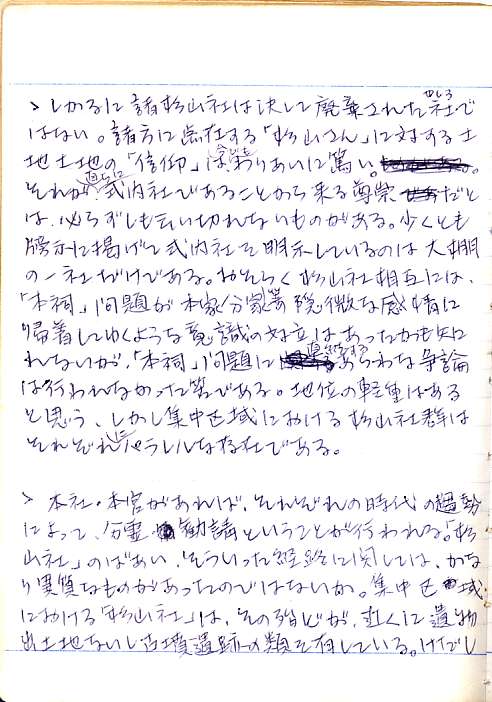 ゝしかるに諸杉山社は決して廃棄された社(やしろ)で
はない。諸方に点在する「杉山さん」に対する土
地土地の「信仰」は今でもわりあいに篤い。
それが直ちに式内社であることから来る尊崇だと
は、必らずしも云い切れないものがある。少くとも
牓示に掲げて式内社を明示しているのは大棚
の一社だけである。おそらく杉山社相互には、
「本祠」問題が本家/分家等隠微な感情に
帰着してゆくような意識の対立はあったかも知
れないが、「本祠」問題に直結するあらわな争論
は行われなかった筈である。地位の軽重はある
と思う、しかし集中区域における杉山社群は
それぞれにパラレルな存在である。

ゝ本社・本宮があれば、それぞれの時代の趨勢
によって、分霊勧請ということが行われる。「杉
山社」のばあい、そういった経緯に関しては、かな
り異質なものがあったのではないか。集中区域
における「杉山社」は、その殆どが、近くに遺物
出土地ないし古墳遺跡の類を有している。けだし